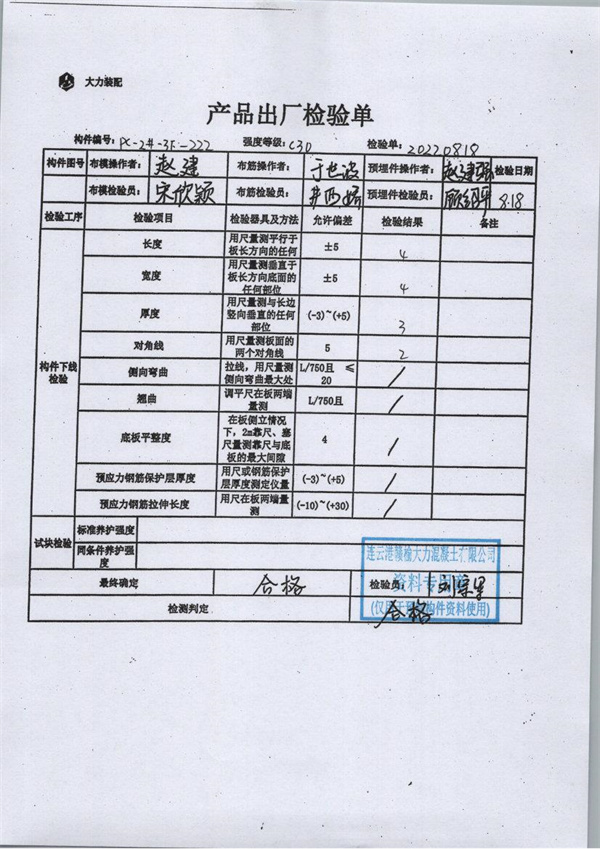 大力装配
产品出厂检验单
构件编号：PC-2#-3F-222 强度等级：C30 检验单：20220818
构件图号 布模操作者： 赵建 布筋操作者： 于世波 预埋件操作者： 赵建强 检验日期
布模检验员： 宋欣颖 布筋检验员： 预埋件检验员： 8.18
检验工序 检验项目 检验器具及方法 允许偏差 检验结果 备注
构件下线检验
长度 用尺量测平行于板长方向的任何 ±5 4
宽度 用尺量测垂直于板长方向底面的任何部位 ±5 4
厚度 用尺量测与长边竖向垂直的任何部位 (-3)~(+5) 3
对角线 用尺量测板面的两个对角线 5 2
侧向弯曲 拉线，用尺量测侧向弯曲最大处 L/750且 ≤20 /
翘曲 调平尺在板两端量测 L/750且 /
底板平整度 在板侧立情况下，2m靠尺、塞尺量测靠尺与底板的最大间隙 4 /
预应力钢筋保护层厚度 用尺或钢筋保护层厚度测定仪量 (-3)~(+5) /
预应力钢筋拉伸长度 用尺在板两端量测 (-10)~(+30) /
试块检验 标准养护强度
同条件养护强度
连云港赣榆大力混凝土有限公司
资料专用章
(仅用于预制构件资料使用)
最终确定 合格 检验员：
检测判定 合格